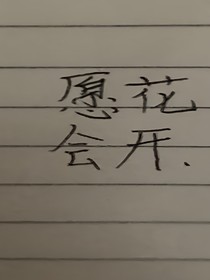 愿花
会开.